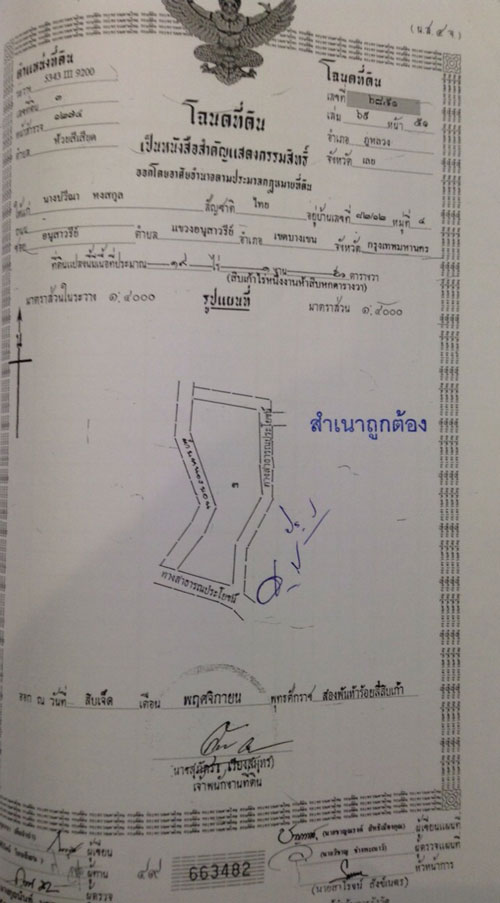 (น.ส. ๔ จ.)
ตำแหน่งที่ดิน
ระวาง 5343 III 9200
เลขที่ดิน ๓
หน้าสำรวจ ๑๒๗๔
ตำบล ห้วยสีเสียด
โฉนดที่ดิน
เลขที่
เล่ม ๖๙ หน้า ๕๑
อำเภอ ภูหลวง
จังหวัด เลย
โฉนดที่ดิน
เป็นหนังสือสำคัญแสดงกรรมสิทธิ์
ออกโดยอาศัยอำนาจตามประมวลกฎหมายที่ดิน
ให้แก่ นางปวีณา หงสกุล สัญชาติ ไทย อยู่บ้านเลขที่ หมู่ที่ ๔
ถนน
ซอย อนุสาวรีย์ ตำบล แขวงอนุสาวรีย์ อำเภอ เขตบางเขน จังหวัด กรุงเทพมหานคร
ที่ดินแปลงนี้มีเนื้อที่ประมาณ ๑๙ ไร่ ๑ งาน ตารางวา
(สิบเก้าไร่หนึ่งงานห้าสิบหกตารางวา)
มาตราส่วนในระวาง ๑:๔๐๐๐ รูปแผนที่ มาตราส่วน ๑:๔๐๐๐
ทางสาธารณประโยชน์
สำเนาถูกต้อง
๓
ทางสาธารณประโยชน์
ออก ณ วันที่ สิบเจ็ด เดือน พฤศจิกายน พุทธศักราช สองพันห้าร้อยสี่สิบเก้า
เจ้าพนักงานที่ดิน
ผู้เขียน
ผู้ทาน
ผู้ตรวจ
๔๙ 663482
ผู้เขียนแผนที่
ผู้ตรวจแผนที่
หัวหน้าการ